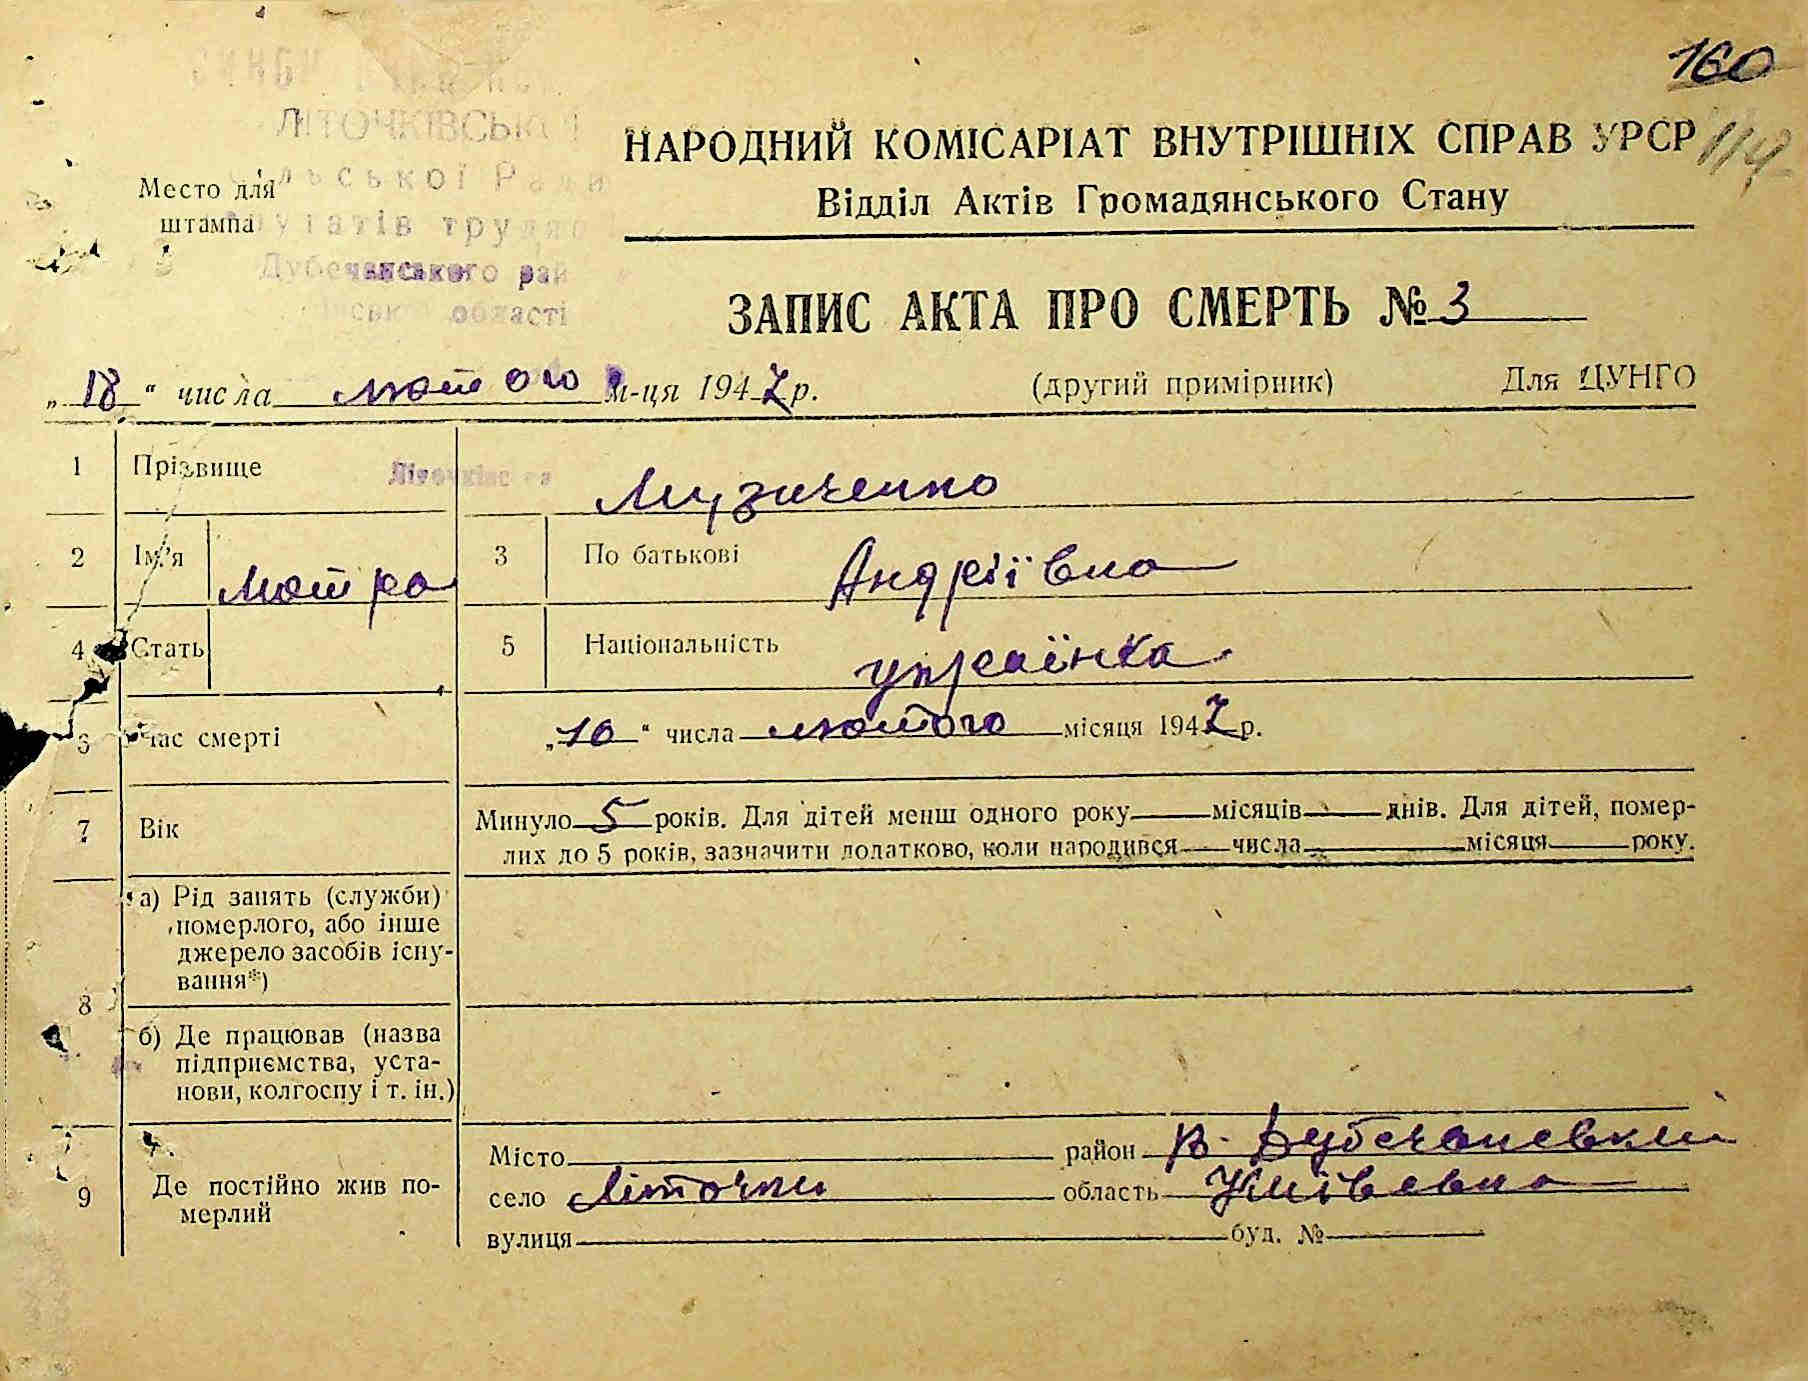 160
ЛІТОЧКІВСЬКОЇ
НАРОДНИЙ КОМІСАРІАТ ВНУТРІШНІХ СПРАВ УРСР 114
сільської Ради
Место для
штампа
Відділ Актів Громадянського Стану
депутатів трудящ
Дубечанського рай
ЗАПИС АКТА ПРО СМЕРТЬ № 3
області
„ 18 “ числа лютого м-ця 1947 р. (другий примірник) Для ЦУНГО
1 Прізвище Музиченко
2 Ім'я Мотря 3 По батькові Андріївна
4 Стать 5 Національність українка
6 Час смерті „10“ числа лютого місяця 1947 р.
7 Вік Минуло 5 років. Для дітей менш одного року місяців днів. Для дітей, помер-
лих до 5 років, зазначити додатково, коли народився числа місяця року.
8 а) Рід занять (служби)
померлого, або інше
джерело засобів існу-
вання*)
б) Де працював (назва
підприємства, уста-
нови, колгоспу і т. ін.)
9 Де постійно жив по-
мерлий
Місто район В. Дубечанський
село Літочки область Київська
вулиця буд. №